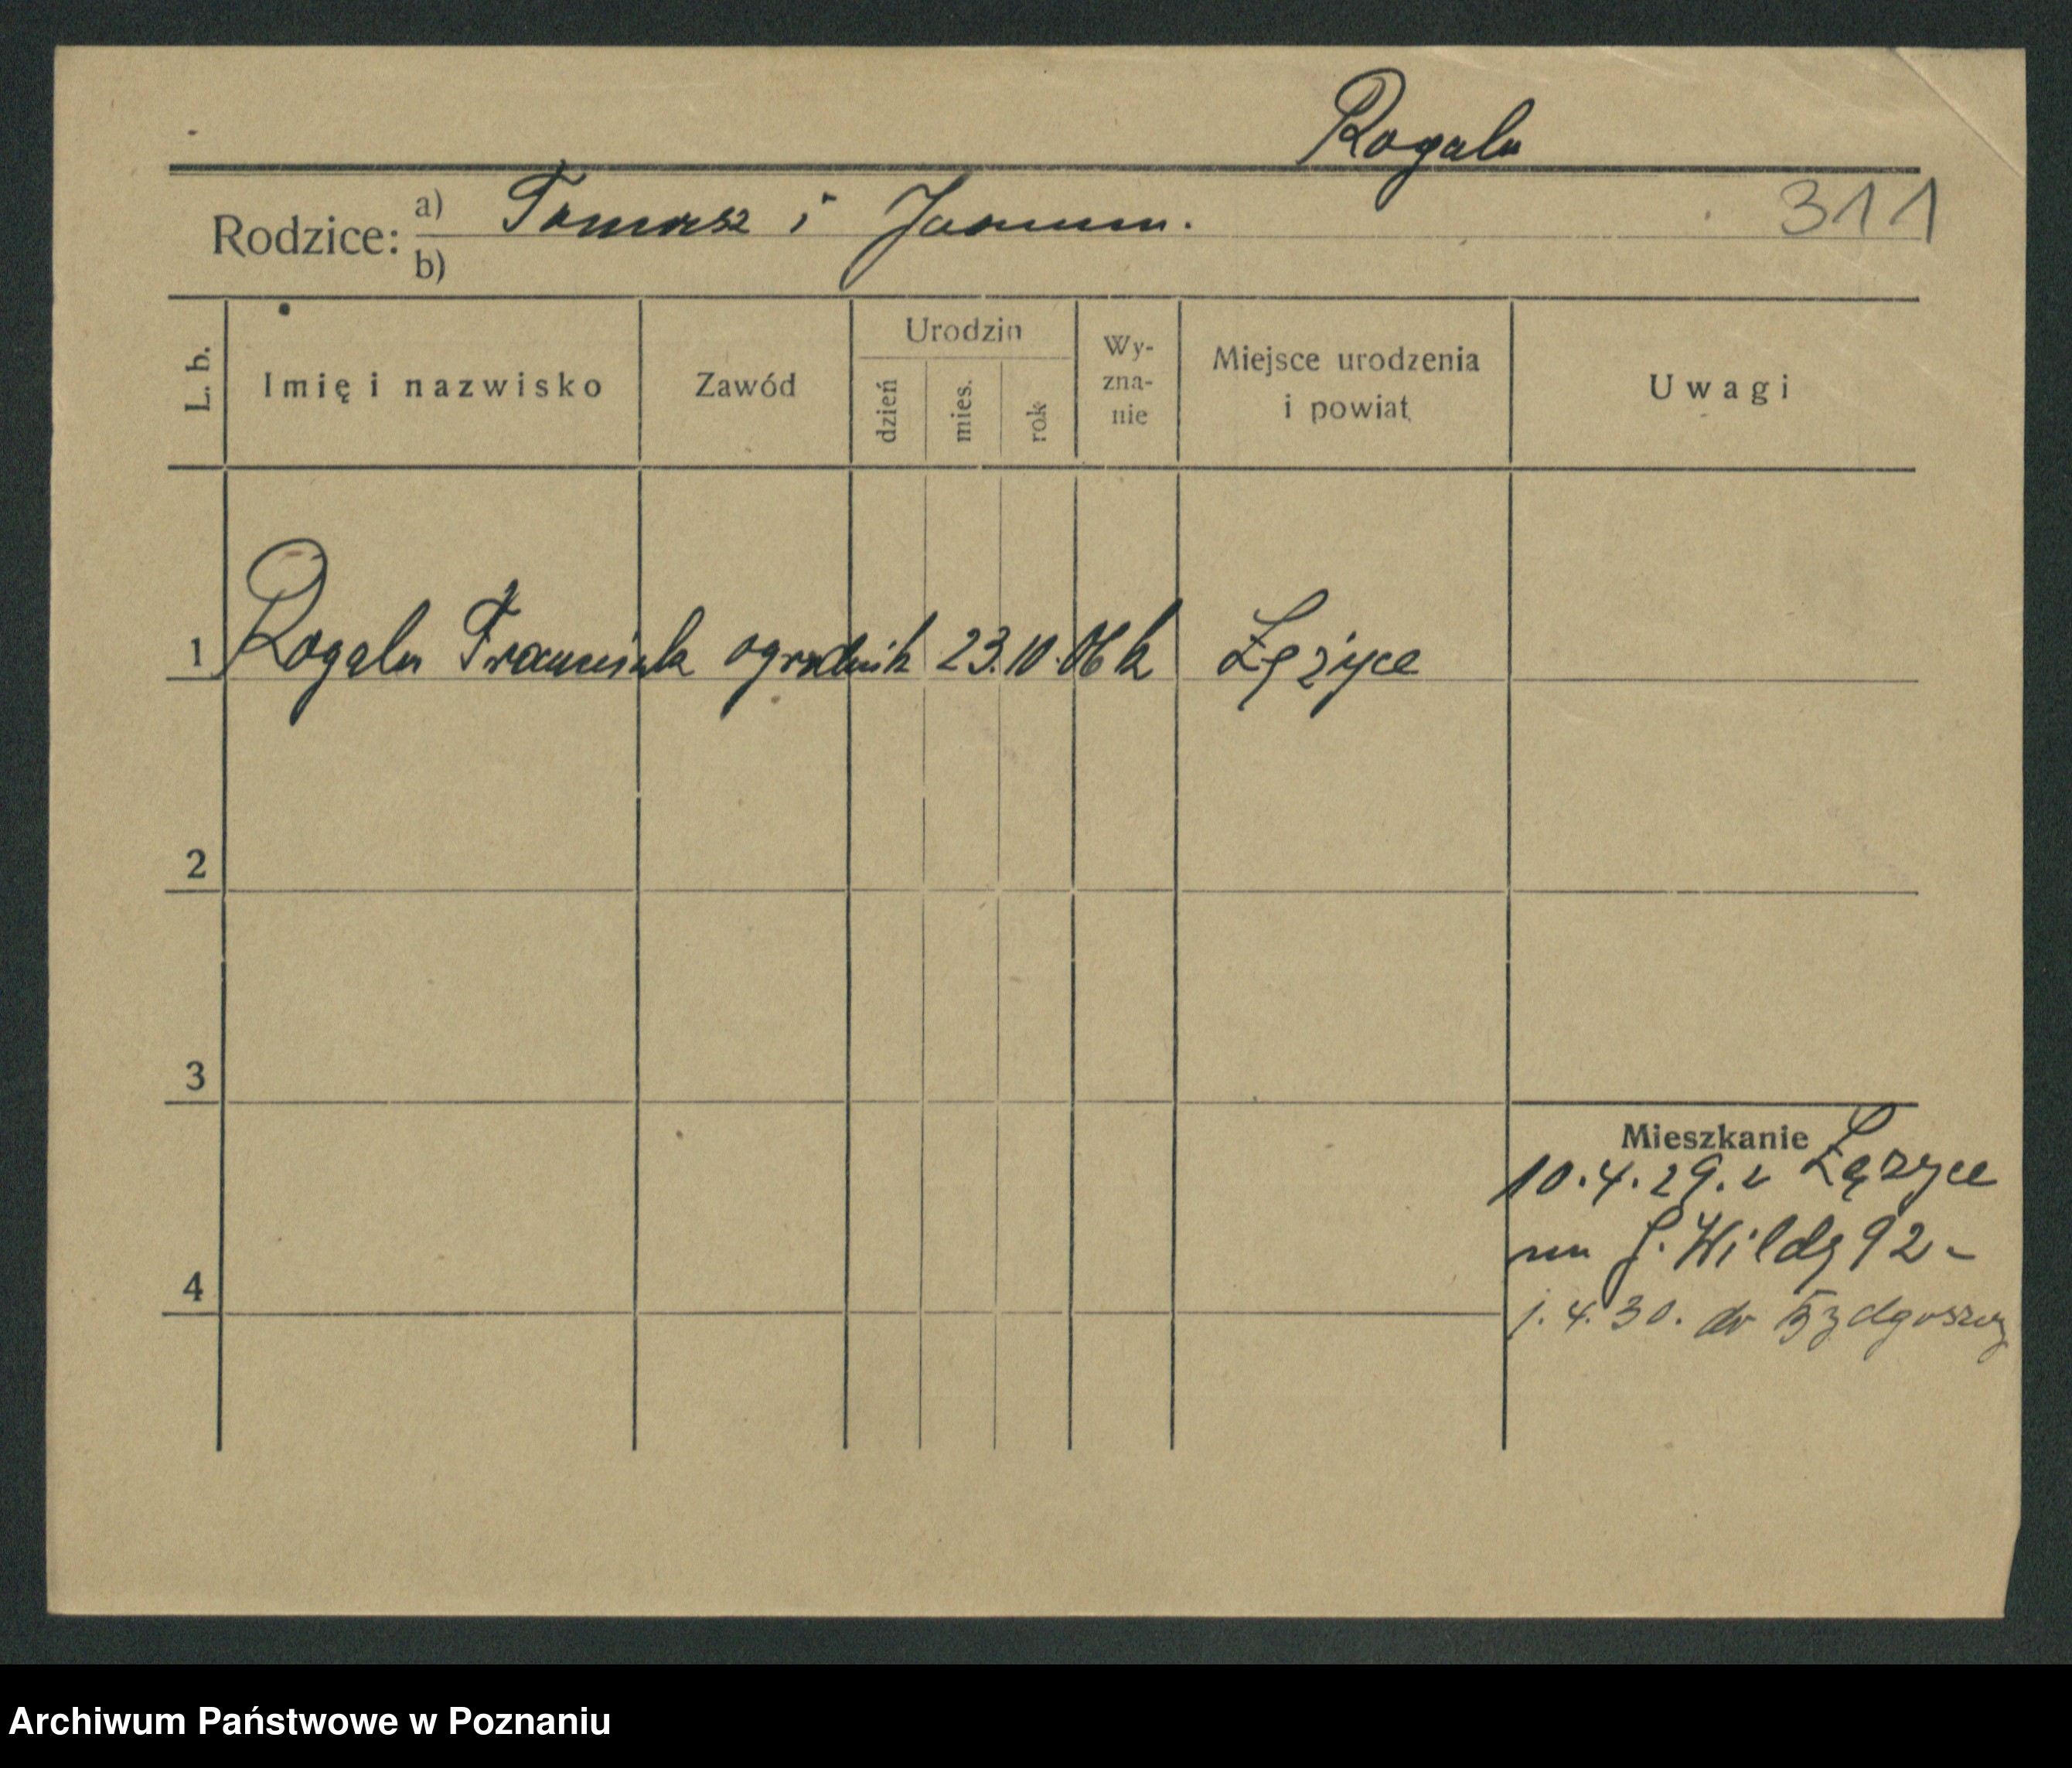 Rogala
311
Rodzice: a) Tomasz i Joanna.
b)
L. b. Imię i nazwisko Zawód Urodzin dzień mies. rok Wy-zna-nie Miejsce urodzenia i powiat Uwagi
1 Rogala Franciszek ogrodnik 23. 10. 06 k Łężyce
2
3
Mieszkanie
10. 4. 29. z Łężyce
na G. Wildę 92 -
4
1. 4. 30. do Bydgoszczy
Archiwum Państwowe w Poznaniu